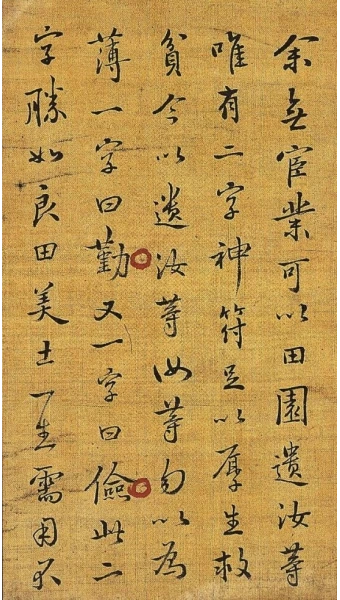 余無宦業可以田園遺汝等
唯有二字神符足以厚生救
貧今以遺汝等汝等勿以為
薄一字曰勤又一字曰儉此二
字勝如良田美土一生需用不